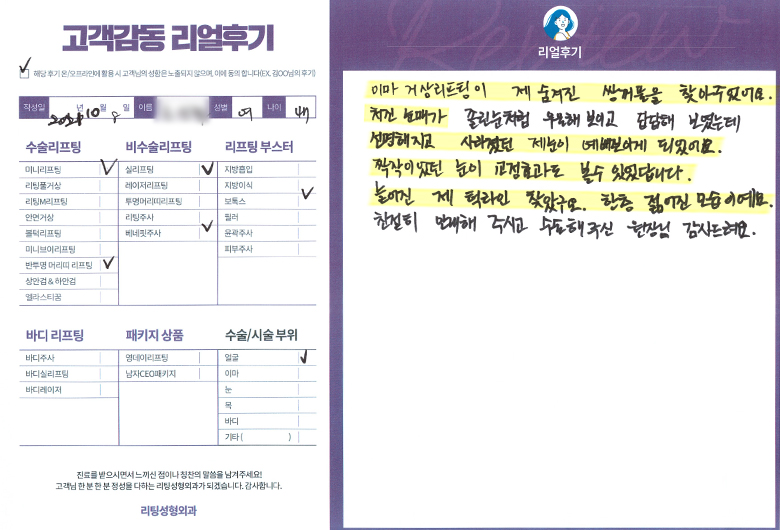 고객감동 리얼후기
해당 후기 온/오프라인에 활용 시 고객님의 성함은 노출되지 않으며, 이에 동의 합니다(EX. 김OO님의 후기)
작성일 년 10 월 8 일 이름 성별 여 나이
수술리프팅 비수술리프팅 리프팅 부스터
미니리프팅 실리프팅 지방흡입
리팅풀거상 레이저리프팅 지방이식
리팅M리프팅 투명머리띠리프팅 보톡스
안면거상 리팅주사 필러
볼턱리프팅 베네핏주사 윤곽주사
미니브이리프팅 피부주사
반투명 머리띠 리프팅
상안검 & 하안검
엘라스티꿈
바디 리프팅 패키지 상품 수술/시술 부위
바디주사 영데이리프팅 얼굴
바디실리프팅 남자CEO패키지 이마
바디레이저 눈
목
바디
기타 ( )
진료를 받으시면서 느끼신 점이나 칭찬의 말씀을 남겨주세요!
고객님 한 분 한 분 정성을 다하는 리팅성형외과가 되겠습니다. 감사합니다.
리팅성형외과
Review
리얼후기
이마 거상리프팅이 제 숨겨진 쌍커풀을 찾아주었어요.
처진 눈매가 졸린눈처럼 우울해 보이고 답답해 보였는데
선명해지고 사라졌던 제눈이 예뻐보이게 되었어요.
짝짝이었던 눈이 교정효과도 볼수 있었답니다.
늘어진 제 턱라인 찾았구요. 한층 젊어진 모습이예요.
친절히 안내해 주시고 수술해주신 원장님 감사드려요.